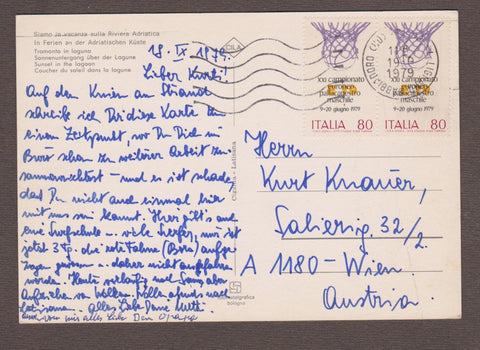 Siamo in vacanza sulla Riviera Adriatica
In Ferien an der Adriatischen Küste
Tramonto in laguna
Sonnenuntergang über der Lagune
Sunset in the lagoon
Coucher du soleil dans la lagune
18. IX 1979.
Lieber Kurti!
Auf den Knien am Strand
schreib ich Dir diese Karte zu
einem Zeitpunkt, wo Du Dich im
Büro schon zu weiterer Arbeit
und es ist schade,
daß Du nicht auch einmal hier
mit uns sein kannst. Hier gibt's auch
eine Surfschule - viele Surfer, nur ist
jetzt 3 Tg. die rote Fahne (Bora) aufge
zogen gewesen - daher nicht
worden. Heute
von Wolken. nach
Alles Liebe Deine Mutti.
auch von mir alles Liebe Dein
CILA
Latisana
bologna
XXI campionato
europeo
pallacanestro
maschile
9-20 giugno 1979
ITALIA 80
XXI campionato
europeo
pallacanestro
maschile
9-20 giugno 1979
ITALIA 80
1979
Herrn
Kurt Knauer,
32/2.
A 1180 - Wien.
Austria.